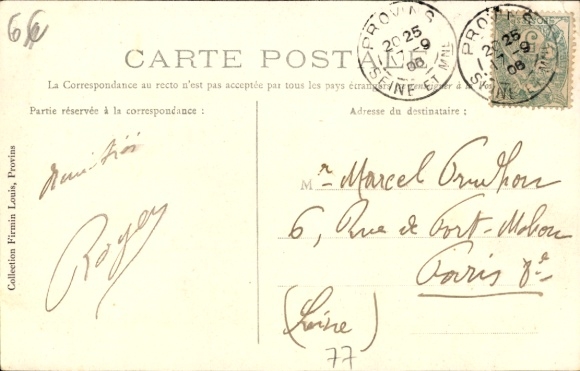 CARTE POSTALE
La Correspondance au recto n'est pas acceptée par tous les pays étrangers
Partie réservée à la correspondance :
Adresse du destinataire :
Collection Firmin Louis, Provins
Roger
Mr Marcel Prudhon
6, Rue de Port-Mahon
Paris 2e
(Seine)
77
PROVINS
20 25
17-9
06
SEINE-ET-MNE
PROVINS
20 25
17-9
06
SEINE-ET-MNE